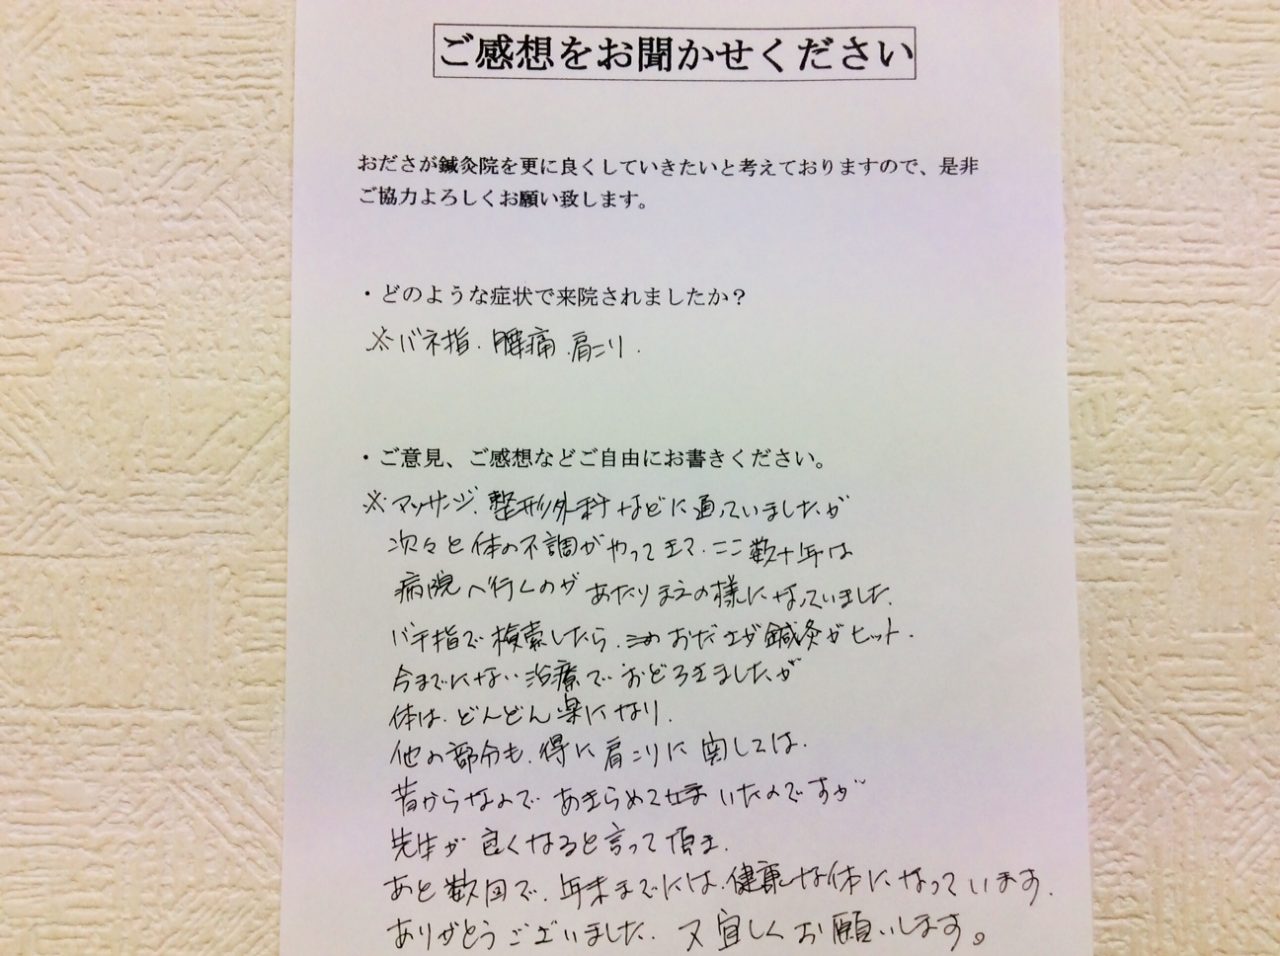 ご感想をお聞かせください
おださが鍼灸院を更に良くしていきたいと考えておりますので、是非
ご協力よろしくお願い致します。
・どのような症状で来院されましたか？
※バネ指、腰痛、肩こり.
・ご意見、ご感想などご自由にお書きください。
※マッサージ、整形外科などに通っていましたが
次々と体の不調がやってきて、ここ数十年は
病院へ行くのがあたりまえの様になっていました.
バネ指で検索したら、おださが鍼灸がヒット.
今までにない治療でおどろきましたが
体は、どんどん楽になり、
他の部分も、得に肩こりに関しては、
昔からなのであきらめて いたのですが
先生が良くなると言って頂き、
あと数回で、年末までには、健康な体になっています.
ありがとうございました. 又宜しくお願いします。